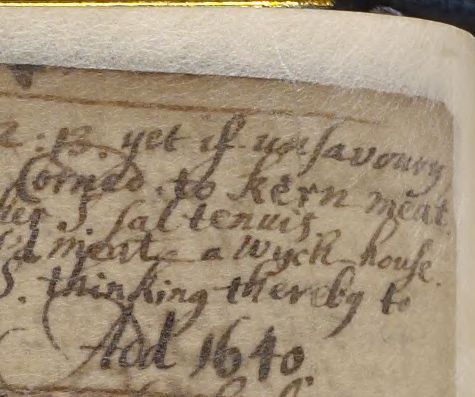 2 : 13. yet if unsavoury
Corned. to Kern meat.
S. sal tenuis.
meat. a Wych house.
S. thinking thereby to
Add 1640.